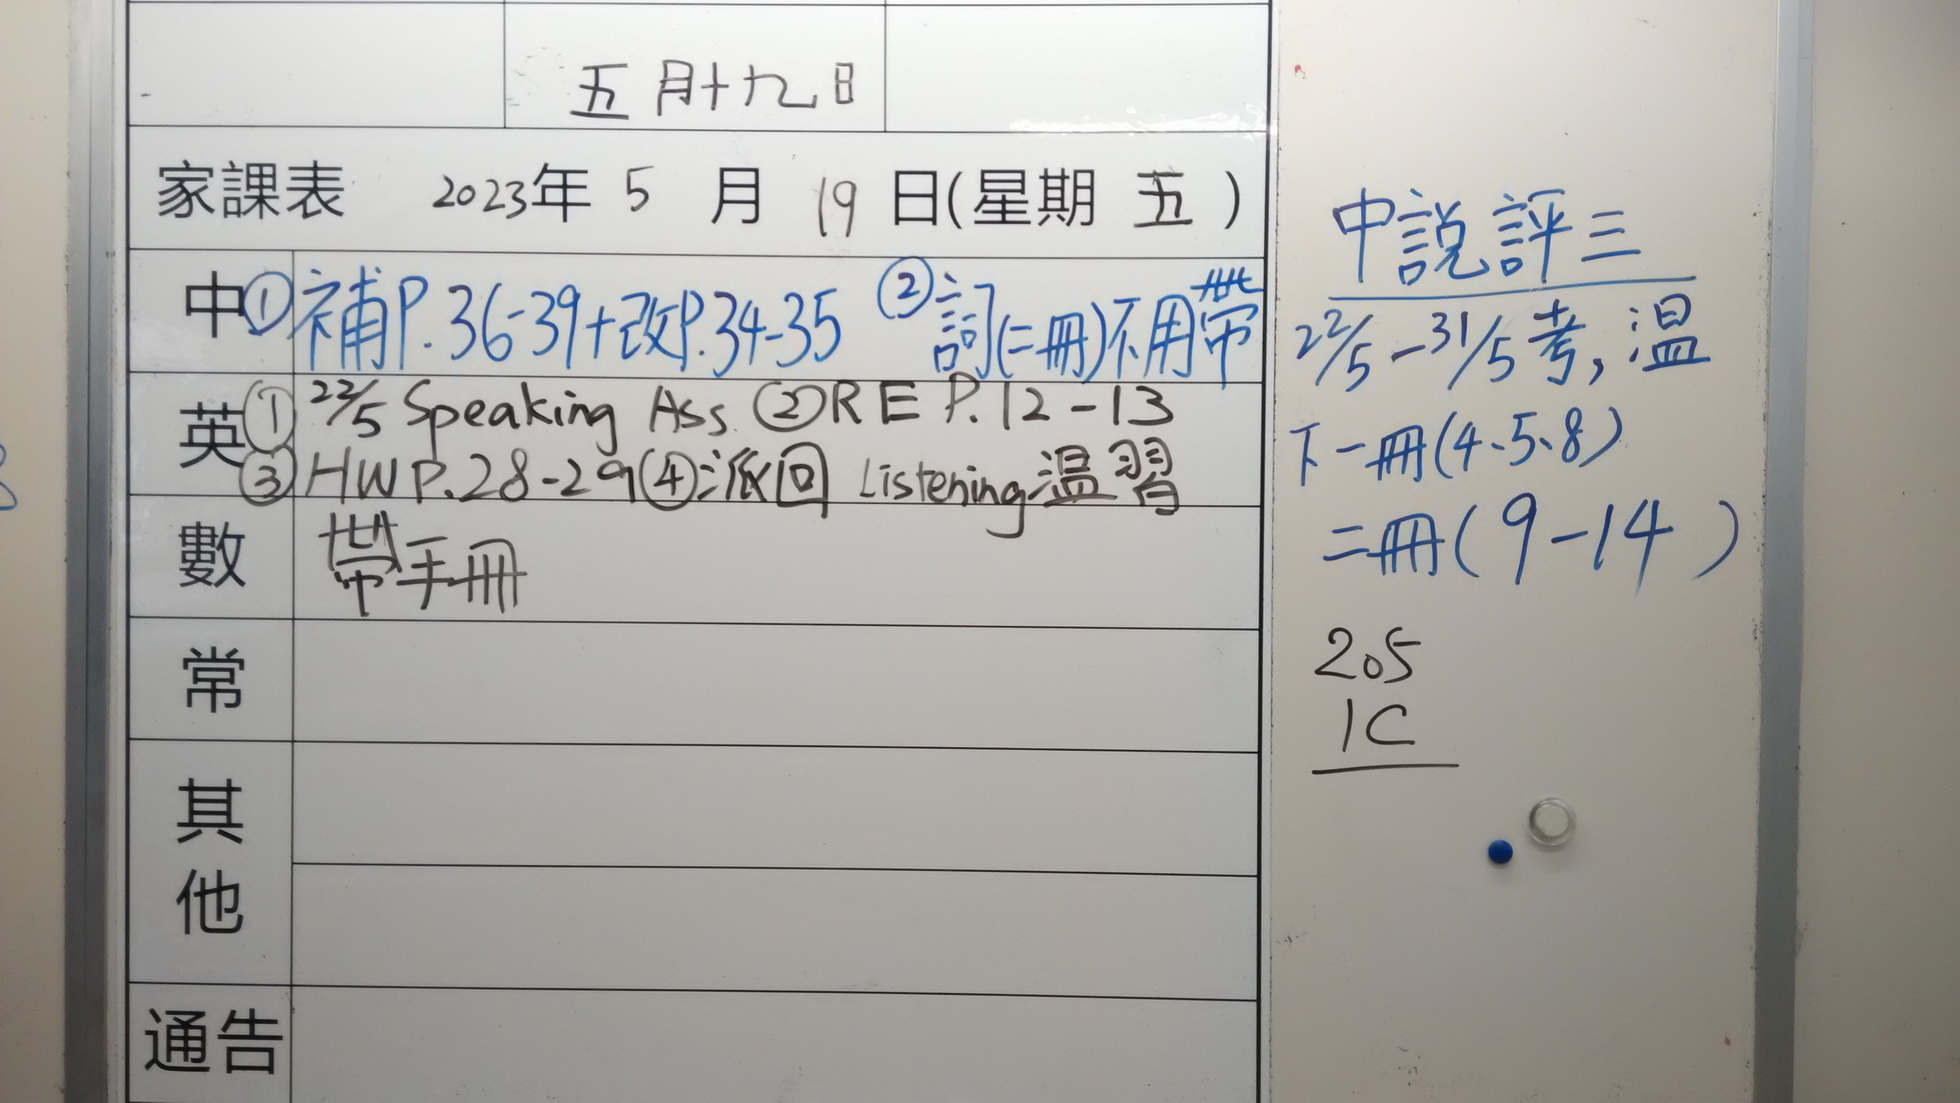 五月十九日
家課表 2023年 5 月 19 日(星期 五 )
中 ① 補P.36-39+改P.34-35 ② 詞(二冊)不用帶
英 ① 22/5 Speaking Ass. ② RE P.12-13
③ HW P.28-29 ④ 派回 Listening 溫習
數 帶手冊
常
其他
通告
中說評三
22/5-31/5考，溫
下一冊(4、5、8)
二冊(9-14)
205
1C